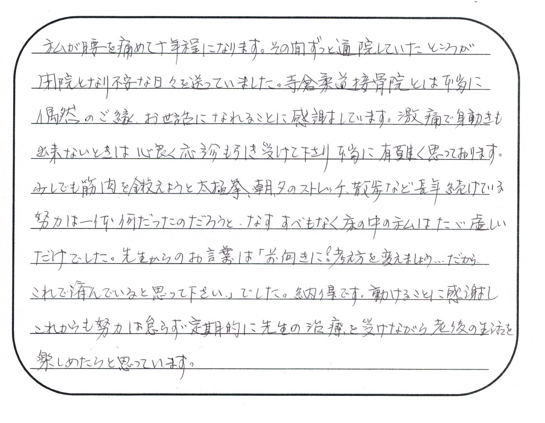 私が腰を痛めて十年程になります。その間ずっと通院していたところが
閉院となり不安な日々を送っていました。寺倉柔道接骨院とは本当に
偶然のご縁、お世話になれることに感謝しています。激痛で身動きも
出来ないときは心良く応診も引き受けて下さり本当に有難く思っております。
少しでも筋肉を鍛えようと太極拳、朝夕のストレッチ、散歩など長年続けている
努力は一体何だったのだろうと、なすすべもなく床の中の私はただ虚しい
だけでした。先生からのお言葉は「前向きに!考え方を変えましょう…だから
これで済んでいると思って下さい。」でした。納得です。動けることに感謝し
これからも努力は怠らず定期的に先生の治療を受けながら老後の生活を
楽しめたらと思っています。